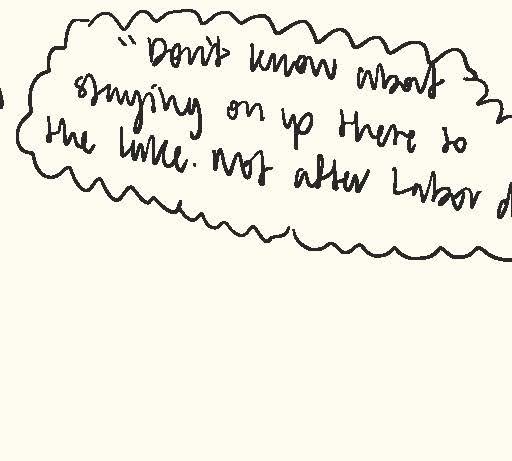 "Don't know about
staying on up there to
the lake. Not after Labor